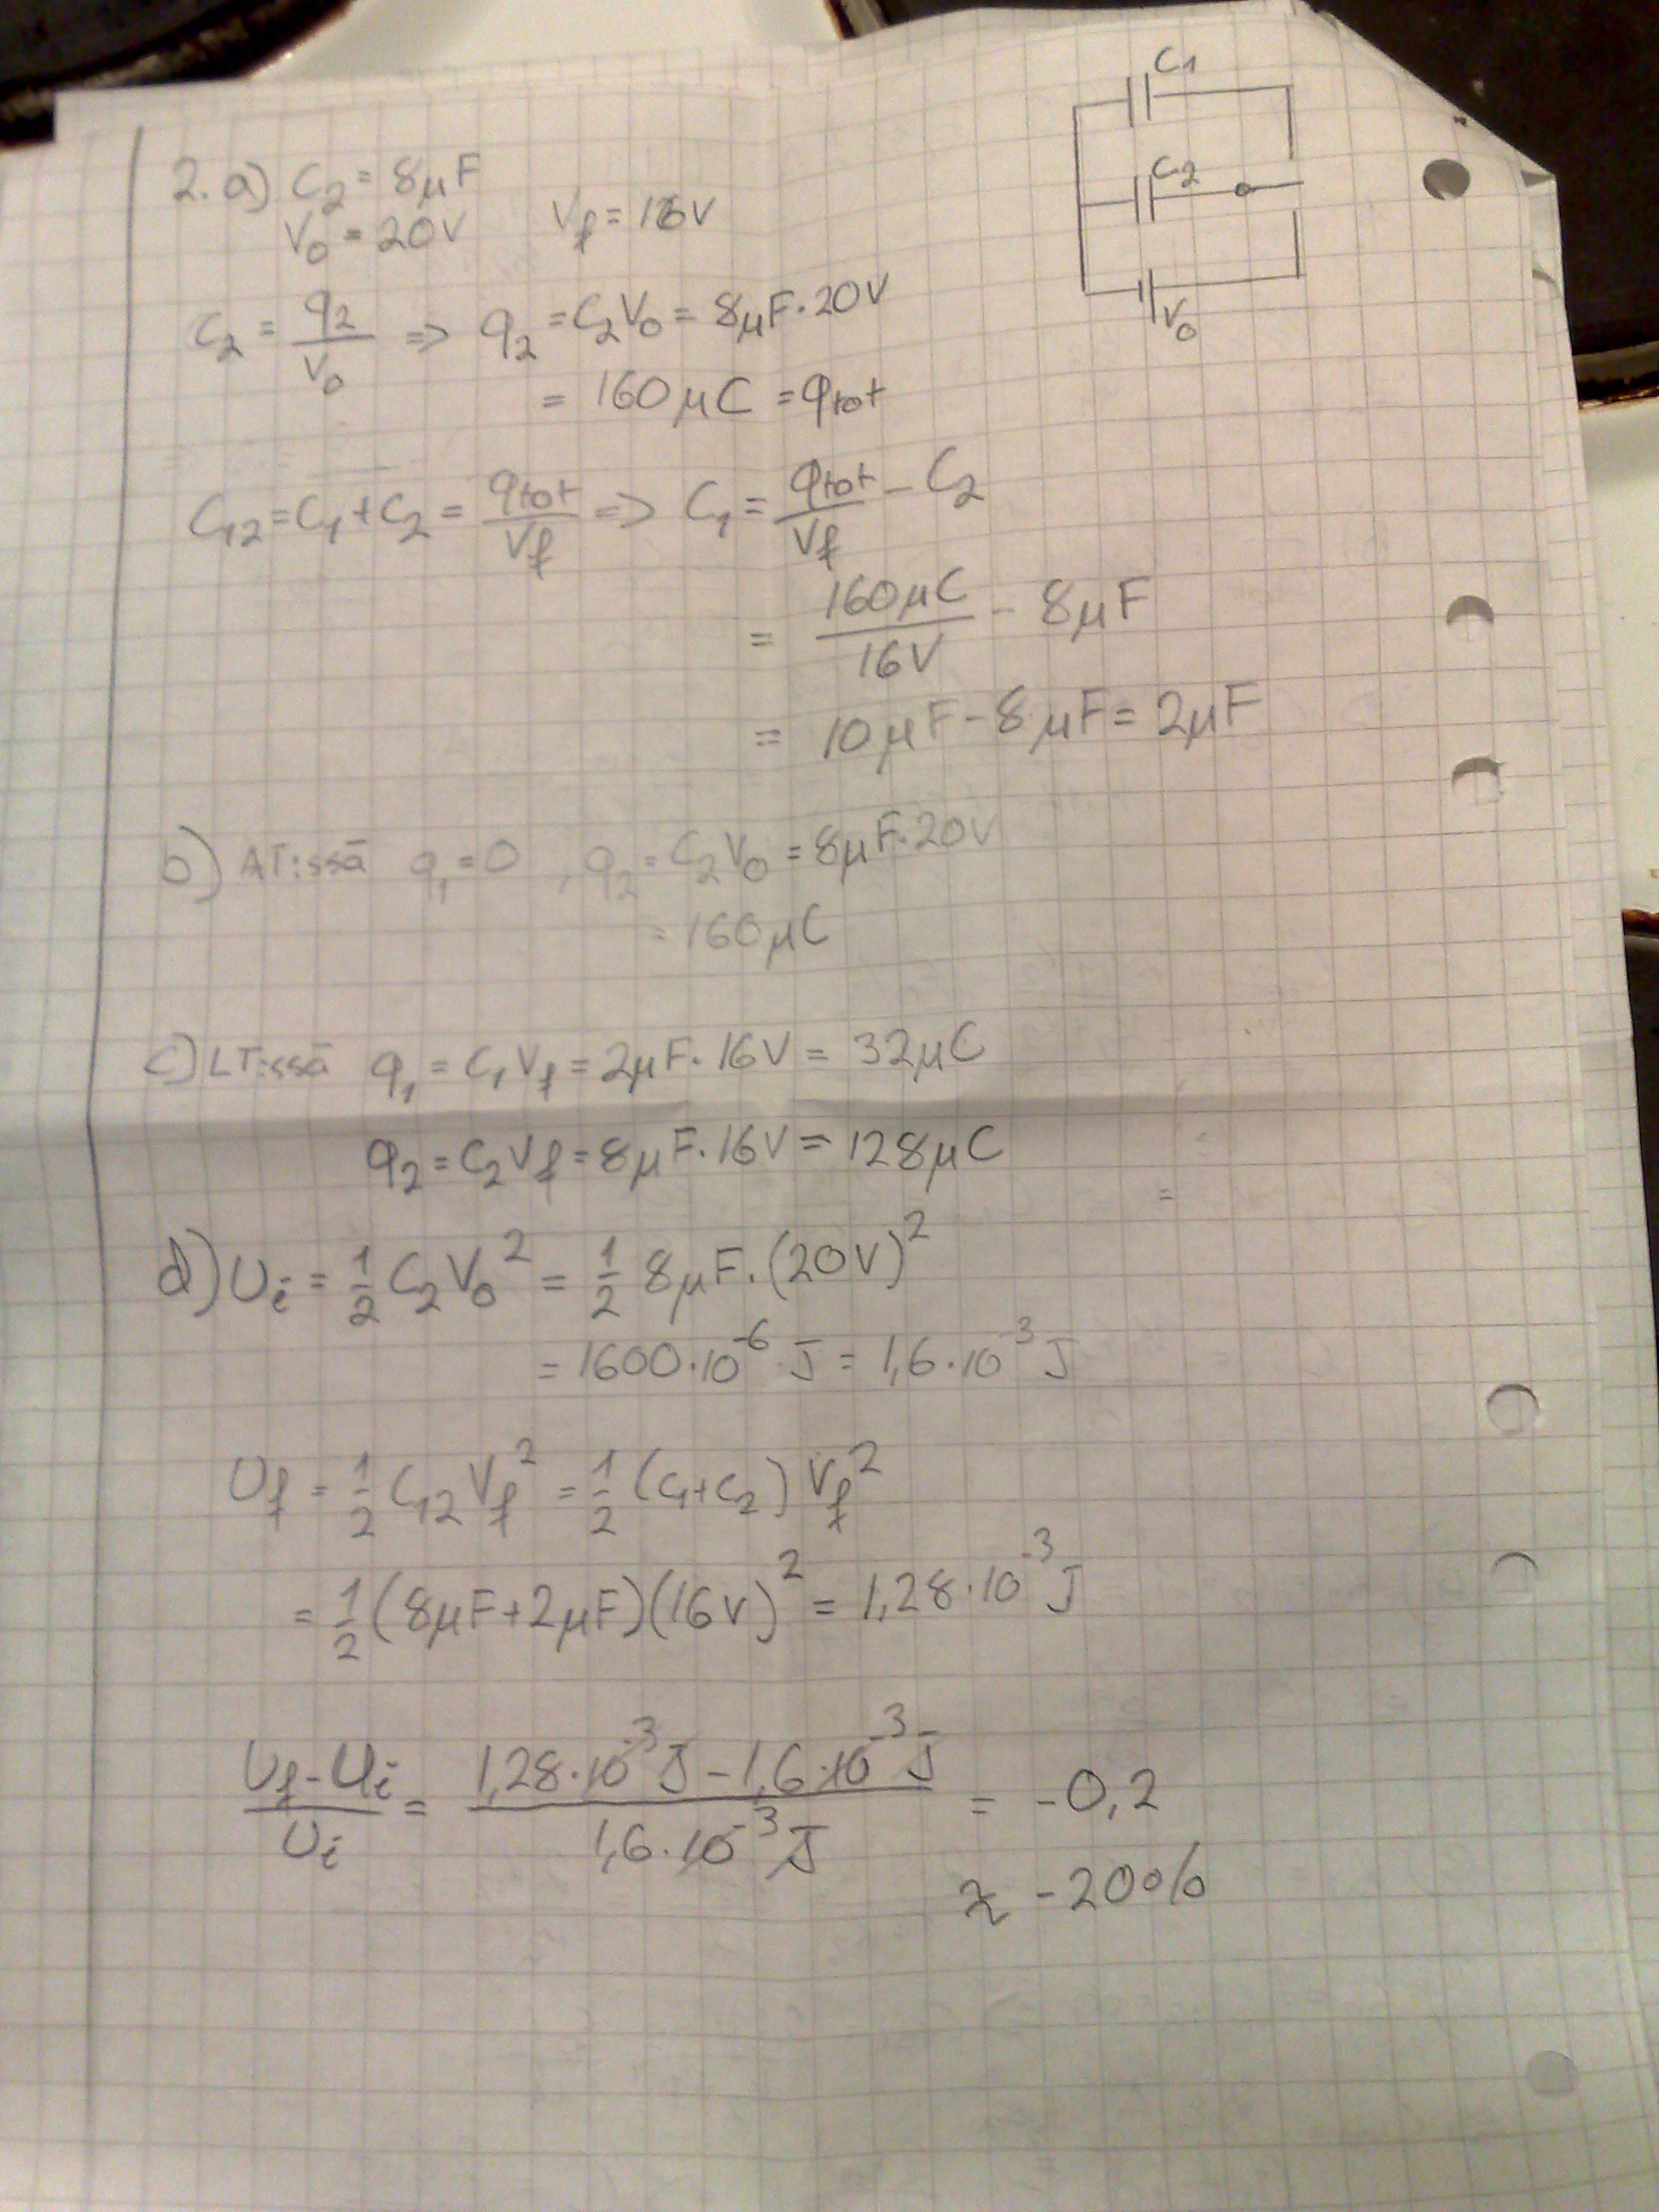 C₁
C₂
V₀
2. a) C₂ = 8μF
V₀ = 20V V_f = 16V
C₂ = q₂/V₀ => q₂ = C₂V₀ = 8μF·20V
= 160μC = q_tot
C₁₂ = C₁ + C₂ = q_tot/V_f => C₁ = q_tot/V_f - C₂
= 160μC/16V - 8μF
= 10μF - 8μF = 2μF
b) AT:ssä q₁ = 0, q₂ = C₂V₀ = 8μF·20V
= 160μC
c) LT:ssä q₁ = C₁V_f = 2μF·16V = 32μC
q₂ = C₂V_f = 8μF·16V = 128μC
=
d) U_i = 1/2 C₂V₀² = 1/2 8μF·(20V)²
= 1600·10⁻⁶ J = 1,6·10⁻³ J
U_f = 1/2 C₁₂V_f² = 1/2 (C₁+C₂) V_f²
= 1/2 (8μF+2μF)(16V)² = 1,28·10⁻³ J
(U_f - U_i)/U_i = (1,28·10⁻³ J - 1,6·10⁻³ J)/(1,6·10⁻³ J) = -0,2
≈ -20%